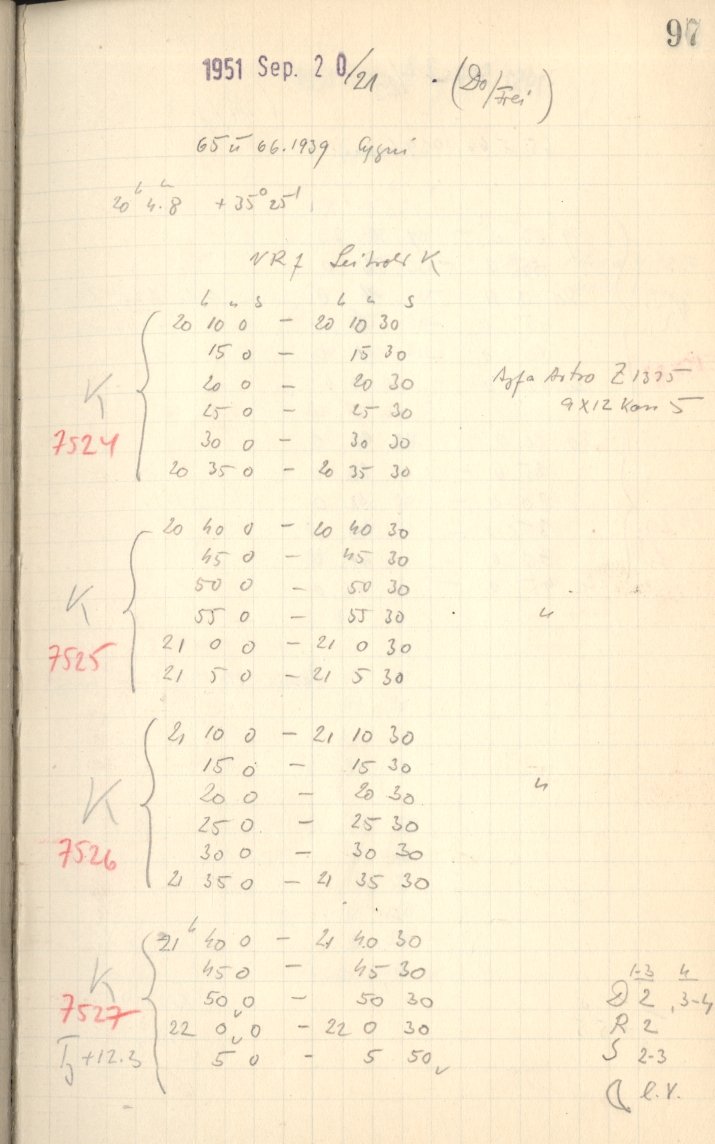 97
1951 Sep. 20/21 (Do/Frei)
65 u 66.1939 Cygni
20h 4m.8 +35° 25'
h m s h m s
20 10 0 — 20 10 30
15 0 — 15 30
20 0 — 20 30
25 0 — 25 30
30 0 — 30 30
20 35 0 — 20 35 30
K
7524
Agfa Astro Z 1335
9x12 Kass 5
20 40 0 — 20 40 30
45 0 — 45 30
50 0 — 50 30
55 0 — 55 30
21 0 0 — 21 0 30
21 5 0 — 21 5 30
K
7525
"
21 10 0 — 21 10 30
15 0 — 15 30
20 0 — 20 30
25 0 — 25 30
30 0 — 30 30
21 35 0 — 21 35 30
K
7526
"
21h 40 0 — 21 40 30
45 0 — 45 30
50 0 — 50 30
22 0 0 — 22 0 30
5 0 — 5 50
K
7527
+12.3
1-3 4
D 2, 3-4
R 2
S 2-3